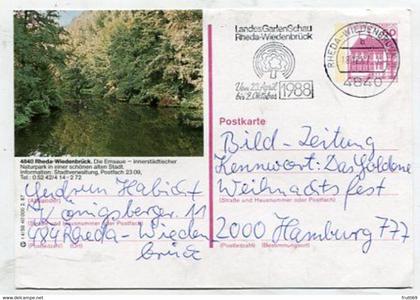 LandesGartenSchau
Rheda-Wiedenbrück
Vom 23. April
bis 2. Oktober 1988
RHEDA-WIEDENBRÜCK
4840
Postkarte
4840 Rheda-Wiedenbrück. Die Emsaue – innerstädtischer
Naturpark in einer schönen alten Stadt.
Information: Stadtverwaltung, Postfach 23 09,
Tel.: 0 52 42/4 14 - 2 72
Habicht
(Absender)
Königsberger. 11
(Straße und Hausnummer oder Postfach)
484 Rheda-Wieden
brück
(Postleitzahl) (Ort)
Bild-Zeitung
Kennwort: Das Goldene
Weihnachtsfest
(Straße und Hausnummer oder Postfach)
2000 Hamburg 777
(Postleitzahl) (Bestimmungsort)